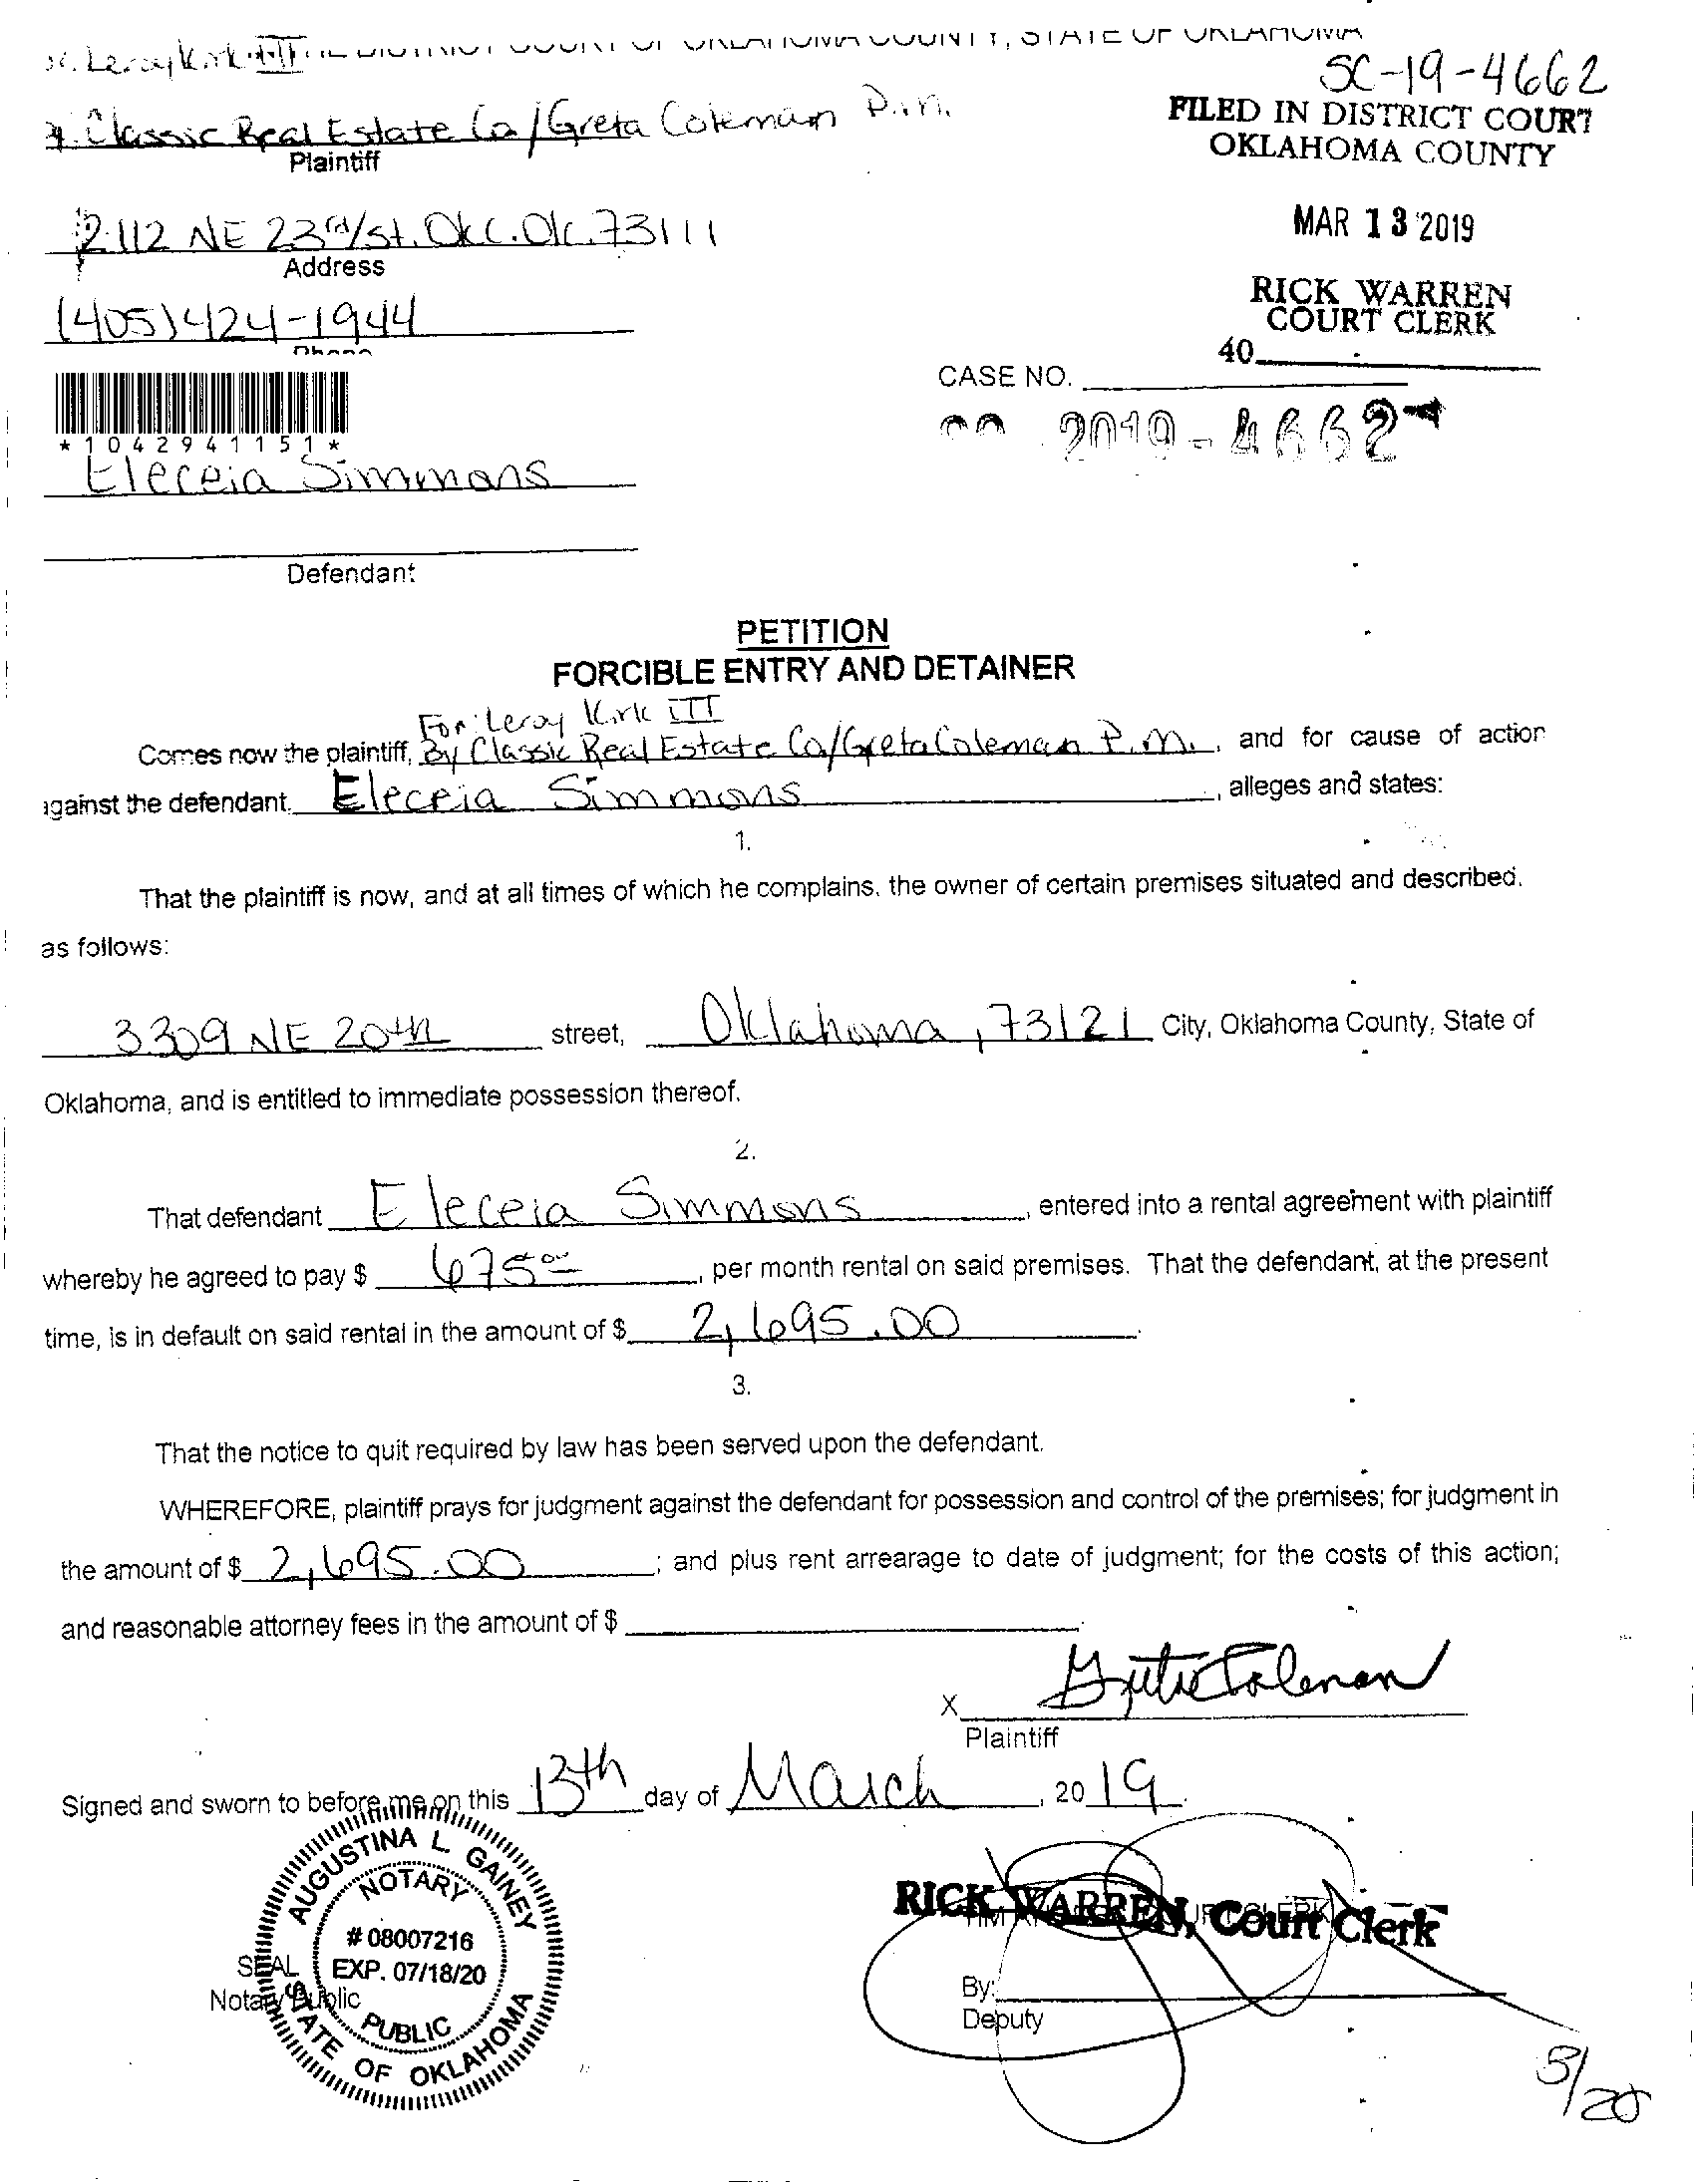 Leroy Kirk III THE DISTRICT COURT OF OKLAHOMA COUNTY, STATE OF OKLAHOMA
SC-19-4662
Classic Real Estate Co/Greta Coleman P.m.
Plaintiff
FILED IN DISTRICT COURT
OKLAHOMA COUNTY
2112 NE 23rd/st. Okc. Ok. 73111
Address
MAR 13 2019
(405)424-1944
Phone
RICK WARREN
COURT CLERK
40
CASE NO.
2019-4662
*1042941151*
Eleceia Simmons
Defendant
PETITION
FORCIBLE ENTRY AND DETAINER
For: Leroy Kirk III
Comes now the plaintiff, By Classic Real Estate Co/Greta Coleman P.M., and for cause of action
against the defendant. Eleceia Simmons, alleges and states:
1.
That the plaintiff is now, and at all times of which he complains, the owner of certain premises situated and described.
as follows:
3309 NE 20th street, Oklahoma, 73121 City, Oklahoma County, State of
Oklahoma, and is entitled to immediate possession thereof.
2.
That defendant Eleceia Simmons, entered into a rental agreement with plaintiff
whereby he agreed to pay $ 675 00, per month rental on said premises. That the defendant, at the present
time, is in default on said rental in the amount of $ 2,695.00.
3.
That the notice to quit required by law has been served upon the defendant.
WHEREFORE, plaintiff prays for judgment against the defendant for possession and control of the premises; for judgment in
the amount of $ 2,695.00; and plus rent arrearage to date of judgment; for the costs of this action;
and reasonable attorney fees in the amount of $
X Greta Coleman
Plaintiff
Signed and sworn to before me on this 13th day of March, 2019.
AUGUSTINA L GAINEY
NOTARY
# 08007216
EXP. 07/18/20
PUBLIC
STATE OF OKLAHOMA
SEAL
Notary Public
RICK WARREN, Court Clerk
By:
Deputy
3/20